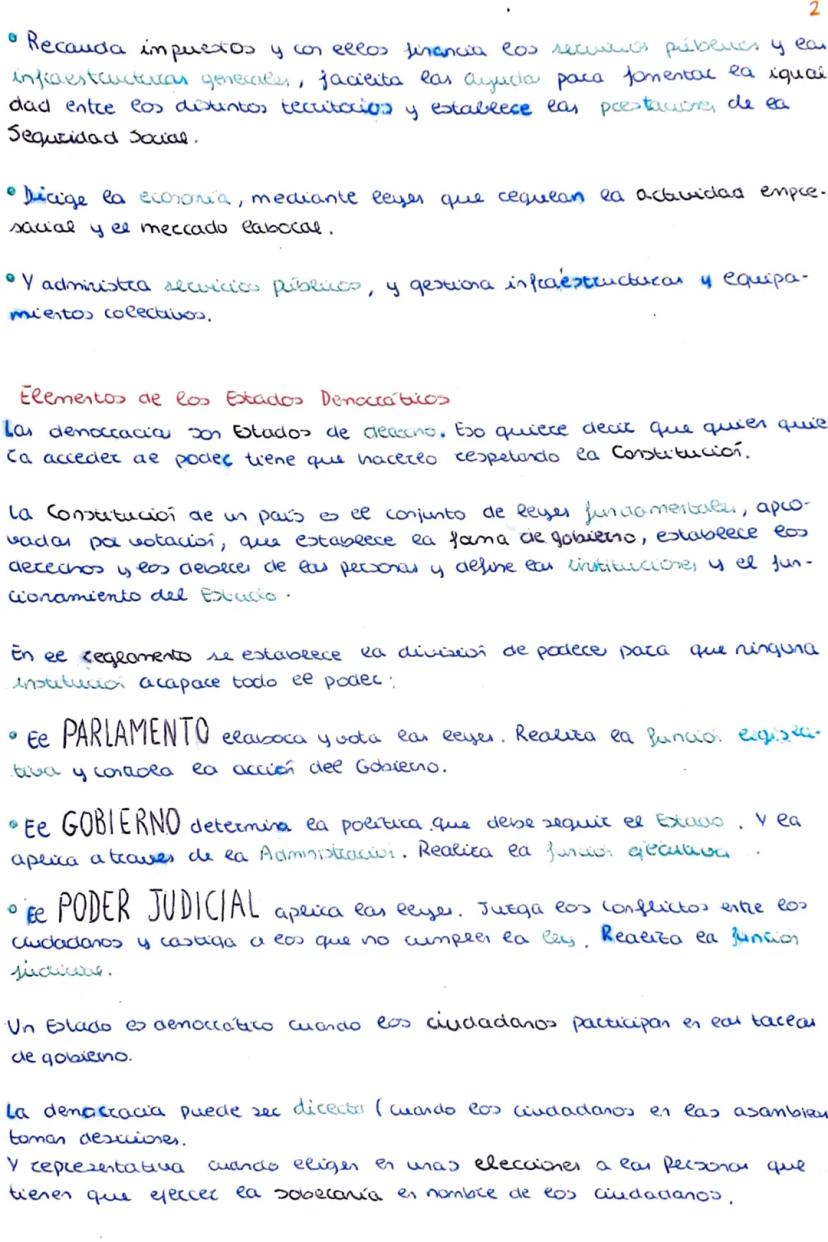 2
• Recauda impuestos y con ellos financia los servicios públicos y las
infraestructuras generales, facilita las ayudas para fomentar la igual
dad entre los distintos territorios y establece las prestaciones de la
Seguridad Social.
• Dirige la economía, mediante leyes que regulan la actividad empre-
sarial y el mercado laboral.
• Y administra servicios públicos, y gestiona infraestructuras y equipa-
mientos colectivos.
Elementos de los Estados Democráticos
Las democracias son Estados de derecho. Eso quiere decir que quien quie
ra acceder al poder tiene que hacerlo respetando la Constitución.
La Constitución de un país es el conjunto de leyes fundamentales, apro-
vadas por votación, que establece la forma de gobierno, establece los
derechos y los deberes de las personas y define las instituciones y el fun-
cionamiento del Estado.
En el reglamento se establece la división de podere para que ninguna
institución acapare todo el poder:
• El PARLAMENTO elabora y vota las leyes. Realiza la función legisla-
tiva y controla la acción del Gobierno.
• El GOBIERNO determina la política que debe seguir el Estado. Y la
aplica a traves de la Administración. Realiza la función ejecutiva.
• El PODER JUDICIAL aplica las leyes. Juzga los conflictos entre los
ciudadanos y castiga a los que no cumplen la ley. Realiza la función
judicial.
Un Estado es democrático cuando los ciudadanos participan en las tareas
de gobierno.
La democracia puede ser directa (cuando los ciudadanos en las asambleas
toman desiciones.
Y representativa cuando eligen en unas elecciones a las personas que
tienen que ejercer la soberanía en nombre de los ciudadanos.